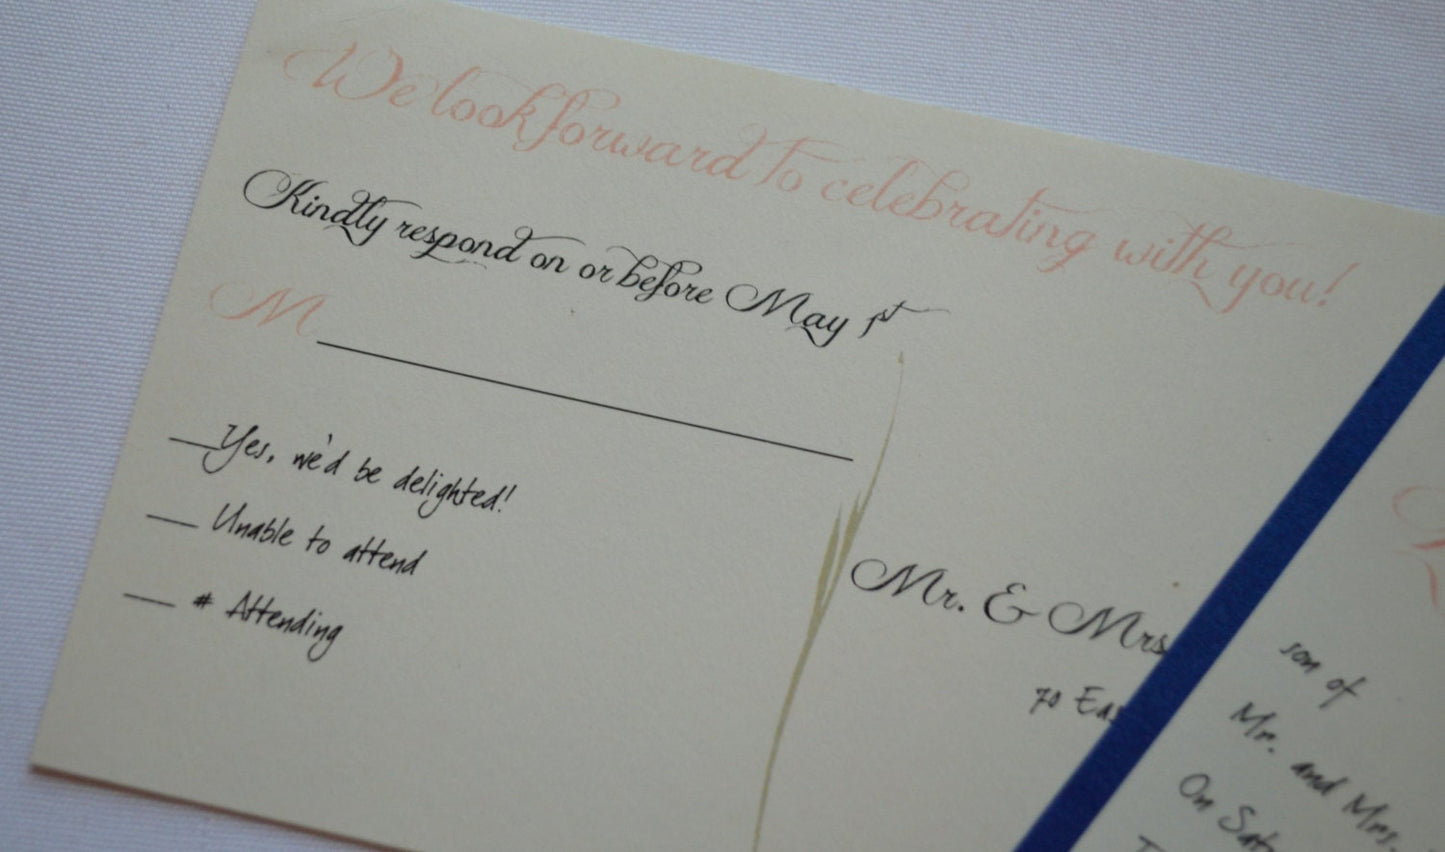 We look forward to celebrating with you!
Kindly respond on or before May 1st
M
Yes, we'd be delighted!
Unable to attend
# Attending
Mr. & Mrs
70
son of
Mr. and Mrs.
On